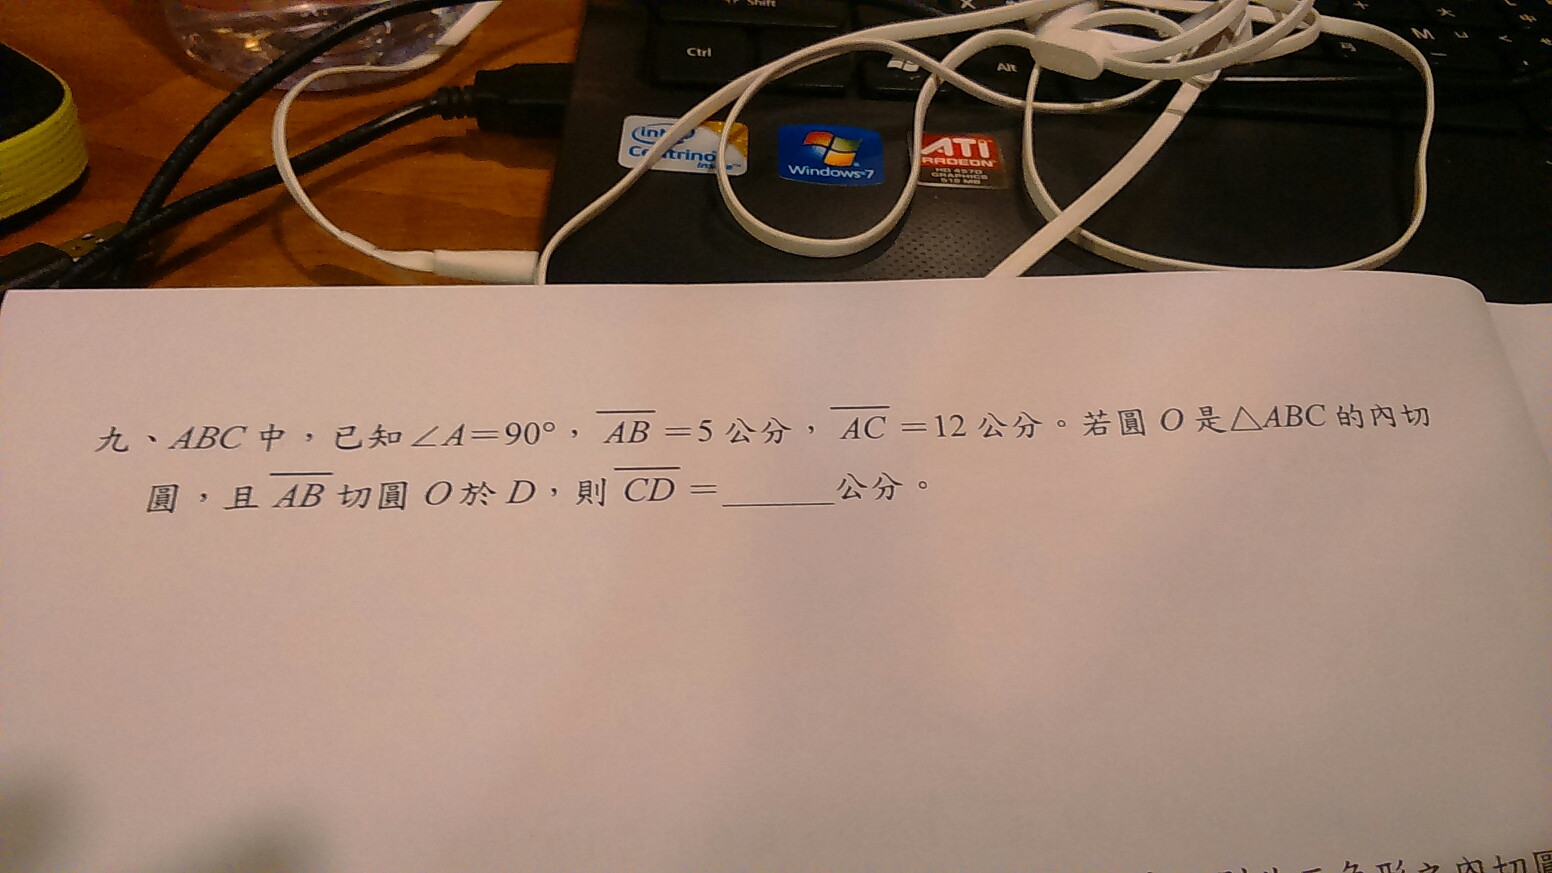 Shift
X
Ctrl
Alt
M
intel
Centrino
inside™
Windows®7
ATI
RADEON
HD 4570
GRAPHICS
512 MB
九、ABC中，已知∠A=90°，AB=5公分，AC=12公分。若圓O是△ABC的內切
圓，且AB切圓O於D，則CD=______公分。
三角形之內切圓